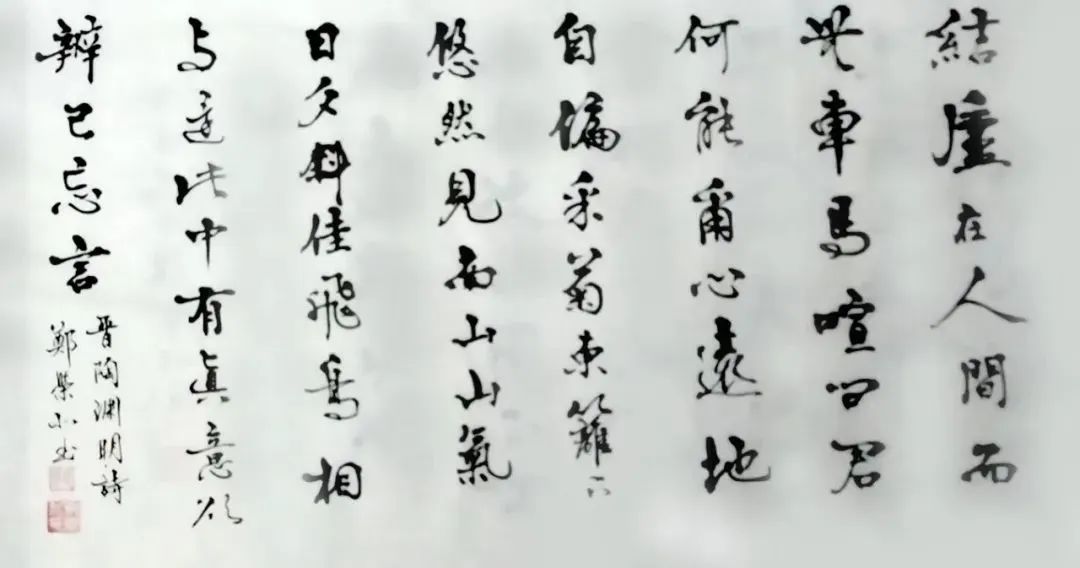 結廬在人間而
無車馬喧問君
何能爾心遠地
自偏采菊東籬下
悠然見南山山氣
日夕斜佳飛鳥相
与還此中有真意欲
辨已忘言
晋陶淵明詩
鄭書